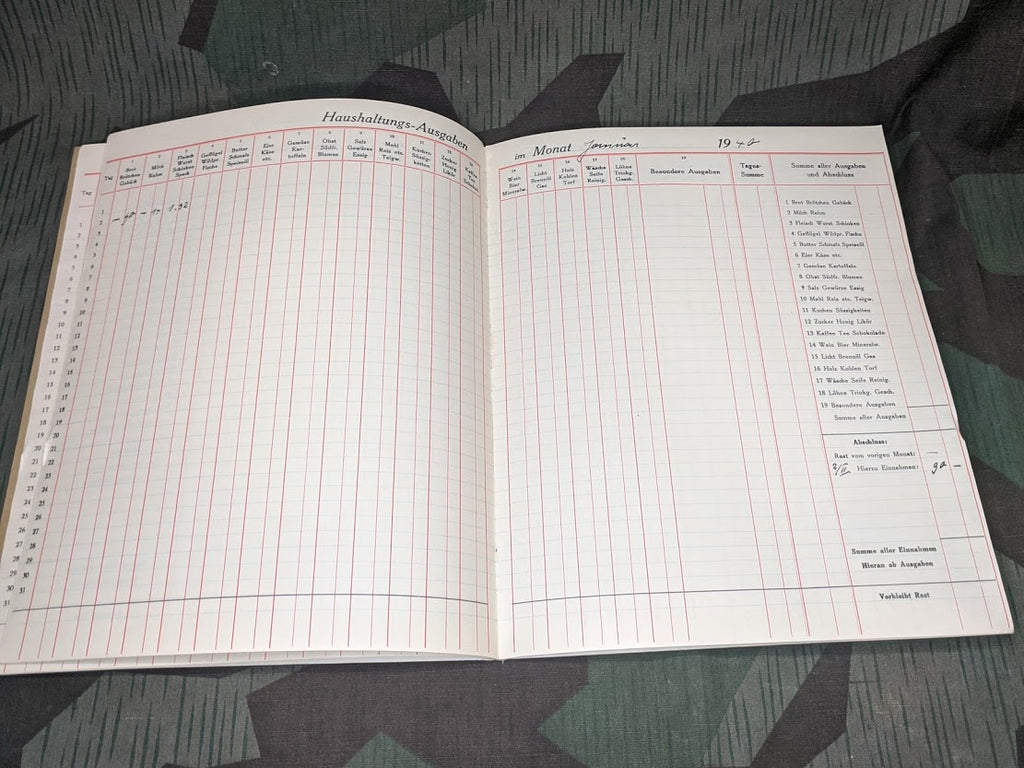 Haushaltungs-Ausgaben
im Monat Januar 1940
Tag
Tag
1 Brot Brötchen Gebäck
2 Milch Rahm
3 Fleisch Wurst Schinken Speck
4 Geflügel Wildpr. Fische
5 Butter Schmalz Speiseöl
6 Eier Käse etc.
7 Gemüse Kartoffeln
8 Obst Südfr. Blumen
9 Salz Gewürze Essig
10 Mehl Reis etc. Teigw.
11 Kuchen Süssigkeiten
12 Zucker Honig Likör
13 Kaffee Tee
14 Wein Bier Mineralw.
15 Licht Brennöl Gas
16 Holz Kohlen Torf
17 Wäsche Seife Reinig.
18 Löhne Trinkg. Gesch.
19 Besondere Ausgaben
Tages-Summe
Summe aller Ausgaben und Abschluss
1
2
3
4
5
6
7
8
9
10
11
12
13
14
15
16
17
18
19
20
21
22
23
24
25
26
27
28
29
30
31
1 Brot Brötchen Gebäck
2 Milch Rahm
3 Fleisch Wurst Schinken
4 Geflügel Wildpr. Fische
5 Butter Schmalz Speiseöl
6 Eier Käse etc.
7 Gemüse Kartoffeln
8 Obst Südfr. Blumen
9 Salz Gewürze Essig
10 Mehl Reis etc. Teigw.
11 Kuchen Süssigkeiten
12 Zucker Honig Likör
13 Kaffee Tee Schokolade
14 Wein Bier Mineralw.
15 Licht Brennöl Gas
16 Holz Kohlen Torf
17 Wäsche Seife Reinig.
18 Löhne Trinkg. Gesch.
19 Besondere Ausgaben
Summe aller Ausgaben
Abschluss:
Rest vom vorigen Monat: —
2/II Hierzu Einnahmen: 90 —
Summe aller Einnahmen
Hieran ab Ausgaben
Verbleibt Rest